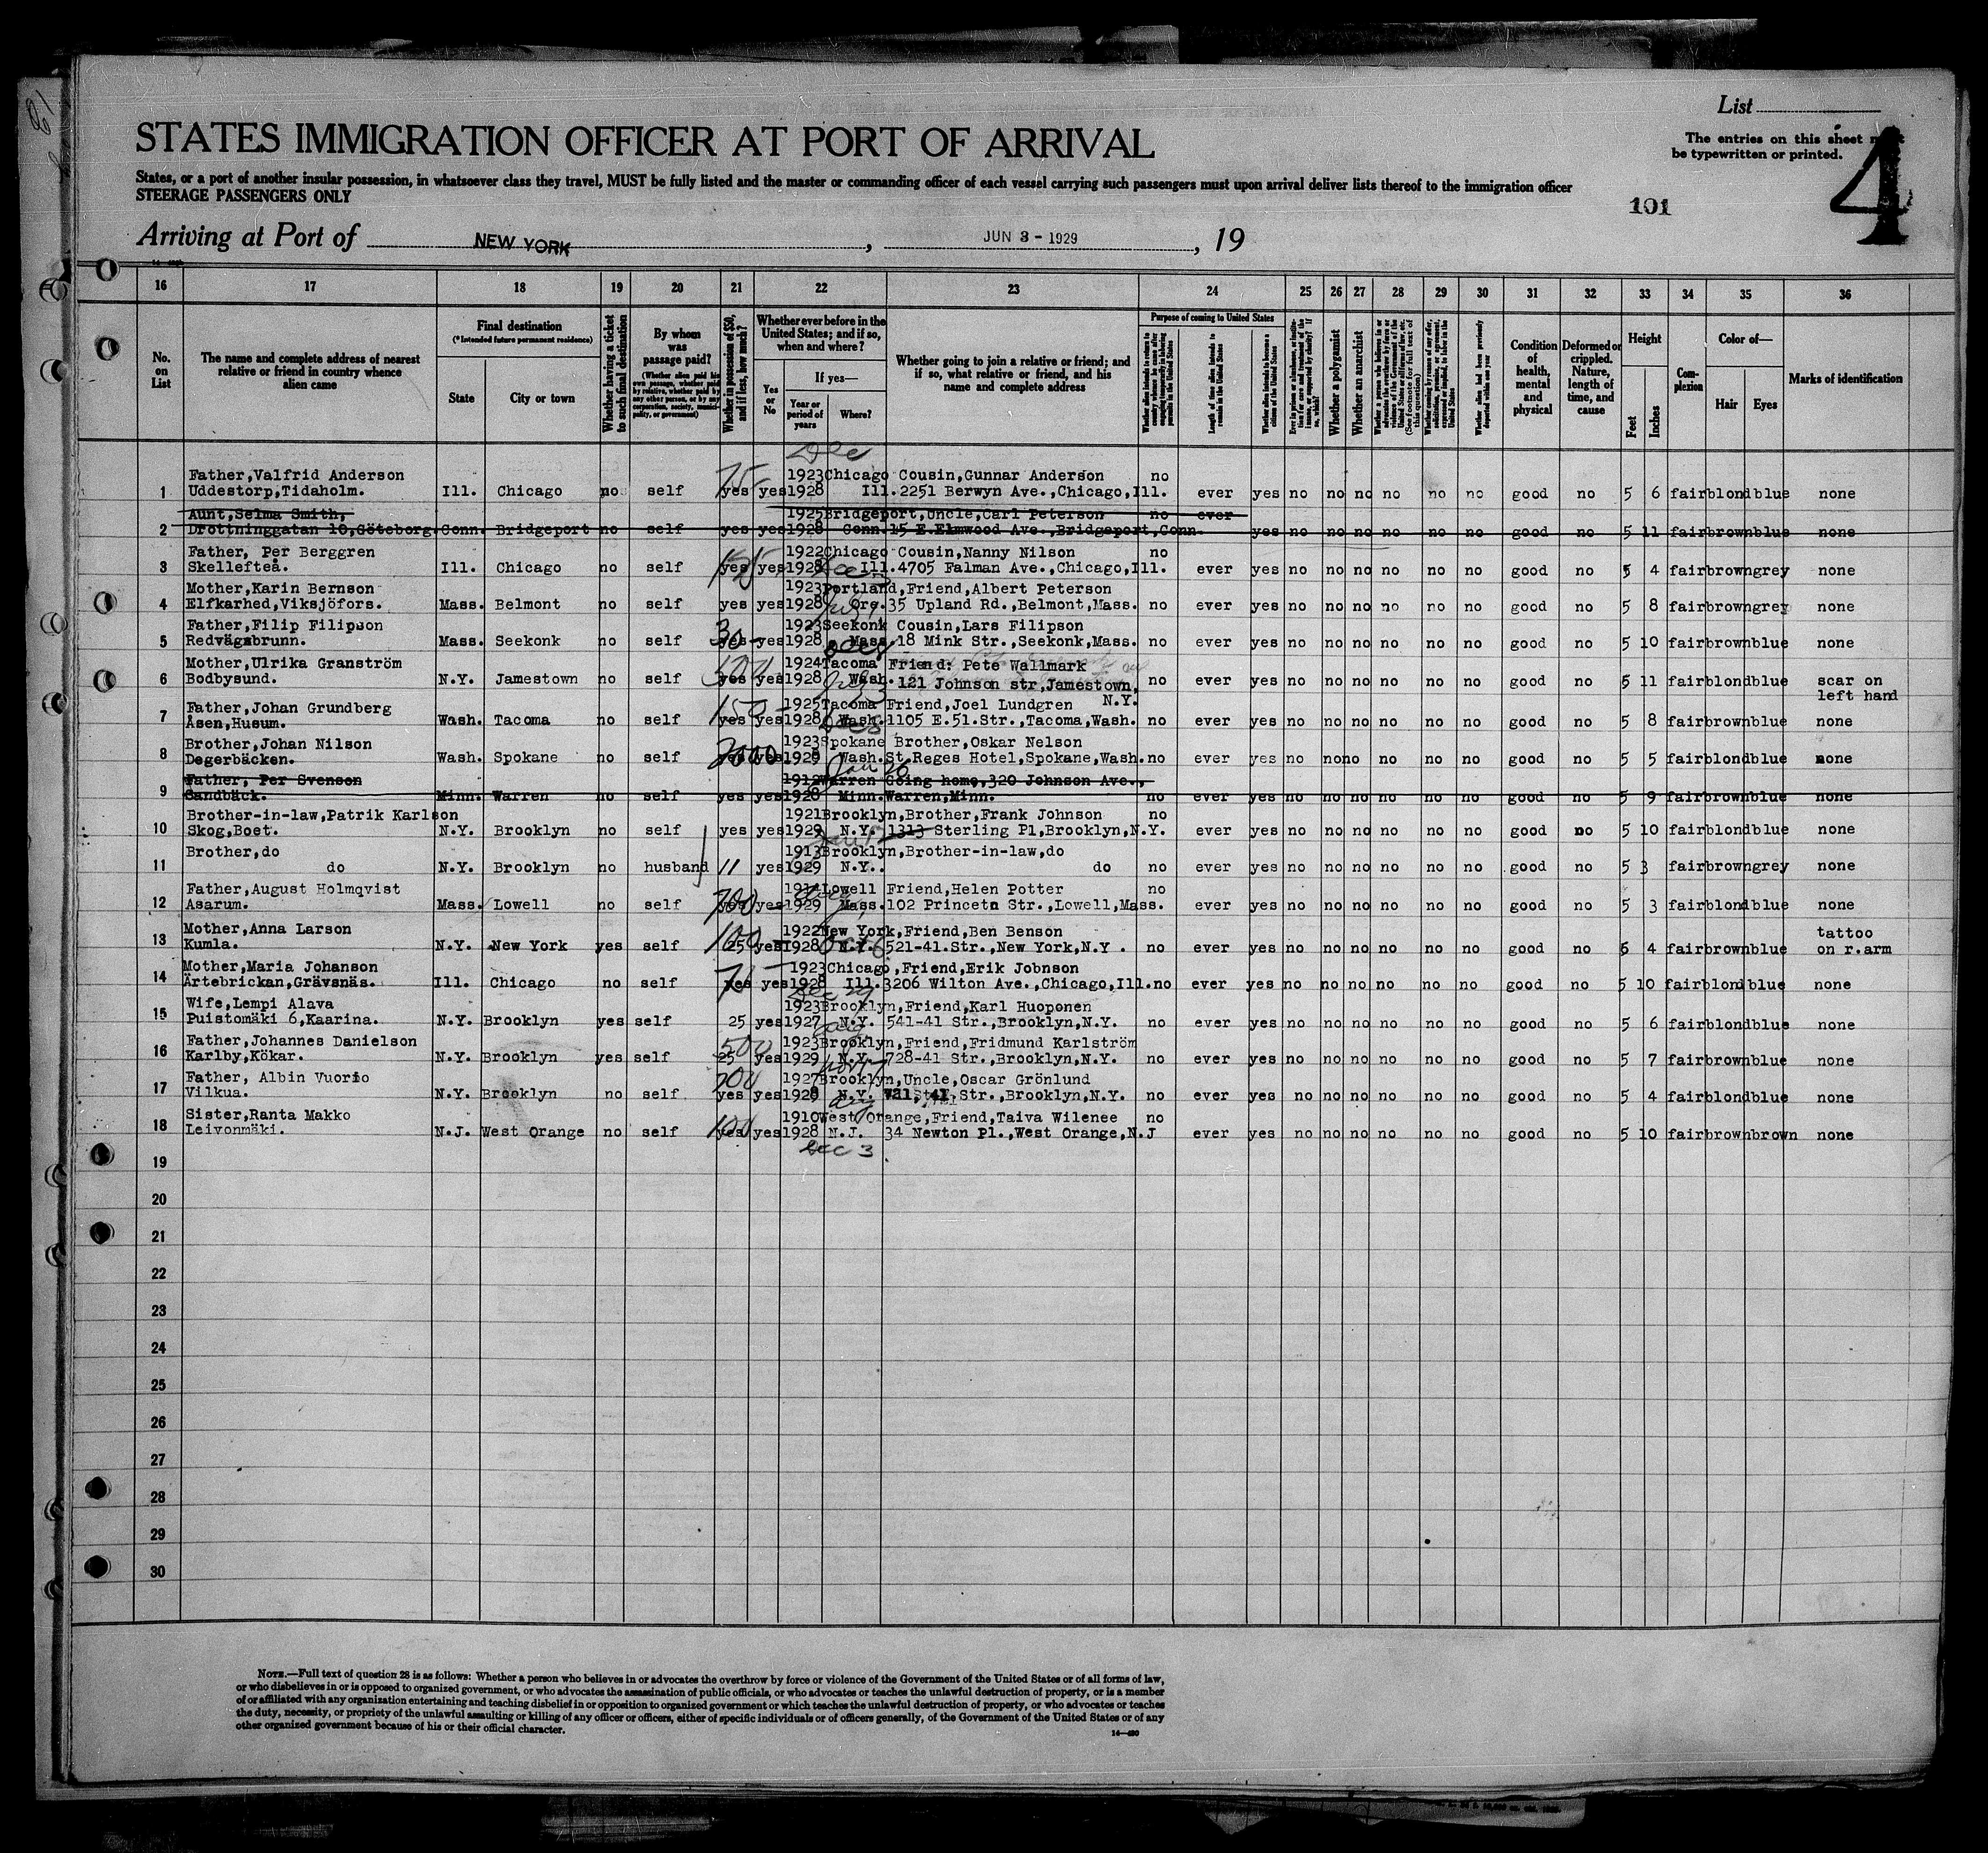 List
STATES IMMIGRATION OFFICER AT PORT OF ARRIVAL
The entries on this sheet
be typewritten or printed.
4
States, or a port of another insular possession, in whatsoever class they travel, MUST be fully listed and the master or commanding officer of each vessel carrying such passengers must upon arrival deliver lists thereof to the immigration officer
STEERAGE PASSENGERS ONLY
101
Arriving at Port of NEW YORK, JUN 3 - 1929, 19
16 17 18 19 20 21 22 23 24 25 26 27 28 29 30 31 32 33 34 35 36
No. on List
The name and complete address of nearest relative or friend in country whence alien came
Final destination
(*Intended future permanent residence)
State
City or town
Whether having a ticket to such final destination
By whom was passage paid?
(Whether alien paid his own passage, whether paid by relative, whether paid by any other person, or by any corporation, society, municipality, or government)
Whether in possession of $50, and if less, how much?
Whether ever before in the United States; and if so, when and where?
Yes or No
If yes—
Year or period of years
Where?
Whether going to join a relative or friend; and if so, what relative or friend, and his name and complete address
Purpose of coming to United States
Length of time alien intends to remain in the United States
Whether alien intends to become a citizen of the United States
Whether a polygamist
Whether an anarchist
(See footnote for full text of this question)
Whether alien had been previously deported within one year
Condition of health, mental and physical
Deformed or crippled. Nature, length of time, and cause
Height
Feet
Inches
Complexion
Color of—
Hair
Eyes
Marks of identification
Dec
Father,Valfrid Anderson 1923 Chicago Cousin,Gunnar Anderson no
1 Uddestorp,Tidaholm. Ill. Chicago no self 75 yes yes 1928 Ill. 2251 Berwyn Ave.,Chicago,Ill. ever yes no no no no no no good no 5 6 fair blond blue none
Aunt,Selma Smith, 1925 Bridgeport,Uncle,Carl Peterson no ever
2 Drottninggatan 10,Göteborg. Conn. Bridgeport no self yes yes 1928 Conn. 15 E.Elmwood Ave.,Bridgeport,Conn. yes no no no no no no good no 5 11 fair brown blue none
Father, Per Berggren 1922 Chicago Cousin,Nanny Nilson no
3 Skellefteå. Ill. Chicago no self yes yes 1928 Ill. 4705 Falman Ave.,Chicago,Ill. ever yes no no no no no no good no 5 4 fair brown grey none
Mother,Karin Bernson 1923 Portland,Friend,Albert Peterson
4 Elfkarhed,Viksjöfors. Mass. Belmont no self yes yes 1928 Ore. 35 Upland Rd.,Belmont,Mass. no ever yes no no no no no no good no 5 8 fair brown grey none
Father,Filip Filipson 1923 Seekonk Cousin,Lars Filipson
5 Redvägsbrunn. Mass. Seekonk no self 30 yes yes 1928 Mass. 18 Mink Str.,Seekonk,Mass. no ever yes no no no no no no good no 5 10 fair brown blue none
Mother,Ulrika Granström 1924 Tacoma Friend: Pete Wallmark
6 Bodbysund. N.Y. Jamestown no self yes yes 1928 Wash. 121 Johnson str,Jamestown, no ever yes no no no no no no good no 5 11 fair blond blue scar on
N.Y. left hand
Father,Johan Grundberg 1925 Tacoma Friend,Joel Lundgren
7 Åsen,Husum. Wash. Tacoma no self 150 yes yes 1928 Wash. 1105 E.51.Str.,Tacoma,Wash. no ever yes no no no no no no good no 5 8 fair brown blue none
Brother,Johan Nilson 1923 Spokane Brother,Oskar Nelson
8 Degerbäcken. Wash. Spokane no self 2000 yes yes 1929 Wash. St.Reges Hotel,Spokane,Wash. no ever yes no no no no no no good no 5 5 fair blond blue none
Jan 26
Father, Per Svenson 1912 Warren Going home,320 Johnson Ave.,
9 Sandbäck. Minn. Warren no self yes yes 1928 Minn. Warren,Minn. no ever yes no no no no no no good no 5 9 fair brown blue none
Brother-in-law,Patrik Karlson 1921 Brooklyn,Brother,Frank Johnson no
10 Skog,Boet. N.Y. Brooklyn no self yes yes 1929 N.Y. 1313 Sterling Pl,Brooklyn,N.Y. ever yes no no no no no no good no 5 10 fair blond blue none
Brother,do 1913 Brooklyn,Brother-in-law,do
11 do N.Y. Brooklyn no husband 11 yes 1929 N.Y.. do no ever yes no no no no no no good no 5 3 fair brown grey none
Father,August Holmqvist 1914 Lowell Friend,Helen Potter no
12 Asarum. Mass. Lowell no self 700 yes yes 1929 Mass. 102 Princetn Str.,Lowell,Mass. ever yes no no no no no no good no 5 3 fair blond blue none
Mother,Anna Larson 1922 New York,Friend,Ben Benson tattoo
13 Kumla. N.Y. New York yes self 100 25 yes 1928 N.Y. 521-41.Str.,New York,N.Y. no ever yes no no no no no no good no 6 4 fair brown blue on r.arm
Oct 6
Mother,Maria Johanson 1923 Chicago,Friend,Erik Jobnson
14 Ärtebrickan,Grävsnäs. Ill. Chicago no self yes yes 1928 Ill. 3206 Wilton Ave.,Chicago,Ill. no ever yes no no no no no no good no 5 10 fair blond blue none
Dec 29
Wife,Lempi Alava 1923 Brooklyn,Friend,Karl Huoponen
15 Puistomäki 6,Kaarina. N.Y. Brooklyn yes self 25 yes 1927 N.Y. 541-41 Str.,Brooklyn,N.Y. no ever yes no no no no no no good no 5 6 fair blond blue none
Father,Johannes Danielson 1923 Brooklyn,Friend,Fridmund Karlström
16 Karlby,Kökar. N.Y. Brooklyn yes self 500 25 yes 1929 N.Y. 728-41 Str.,Brooklyn,N.Y. no ever yes no no no no no no good no 5 7 fair brown blue none
Father, Albin Vuorio 1927 Brooklyn,Uncle,Oscar Grönlund
17 Vilkua. N.Y. Brooklyn no self yes yes 1928 N.Y. 41. Str.,Brooklyn,N.Y. no ever yes no no no no no no good no 5 4 fair blond blue none
Sister,Ranta Makko 1910 West Orange,Friend,Taiva Wilenee no
18 Leivonmäki. N.J. West Orange no self 100 yes yes 1928 N.J. 34 Newton Pl.,West Orange,N.J ever yes no no no no no no good no 5 10 fair brown brown none
Dec 3
19
20
21
22
23
24
25
26
27
28
29
30
NOTE.—Full text of question 28 is as follows: Whether a person who believes in or advocates the overthrow by force or violence of the Government of the United States or of all forms of law,
or who disbelieves in or is opposed to organized government, or who advocates the assassination of public officials, or who advocates or teaches the unlawful destruction of property, or is a member
of or affiliated with any organization entertaining and teaching disbelief in or opposition to organized government or which teaches the unlawful destruction of property, or who advocates or teaches
the duty, necessity, or propriety of the unlawful assaulting or killing of any officer or officers, either of specific individuals or of officers generally, of the Government of the United States or of any
other organized government because of his or their official character.
14—430